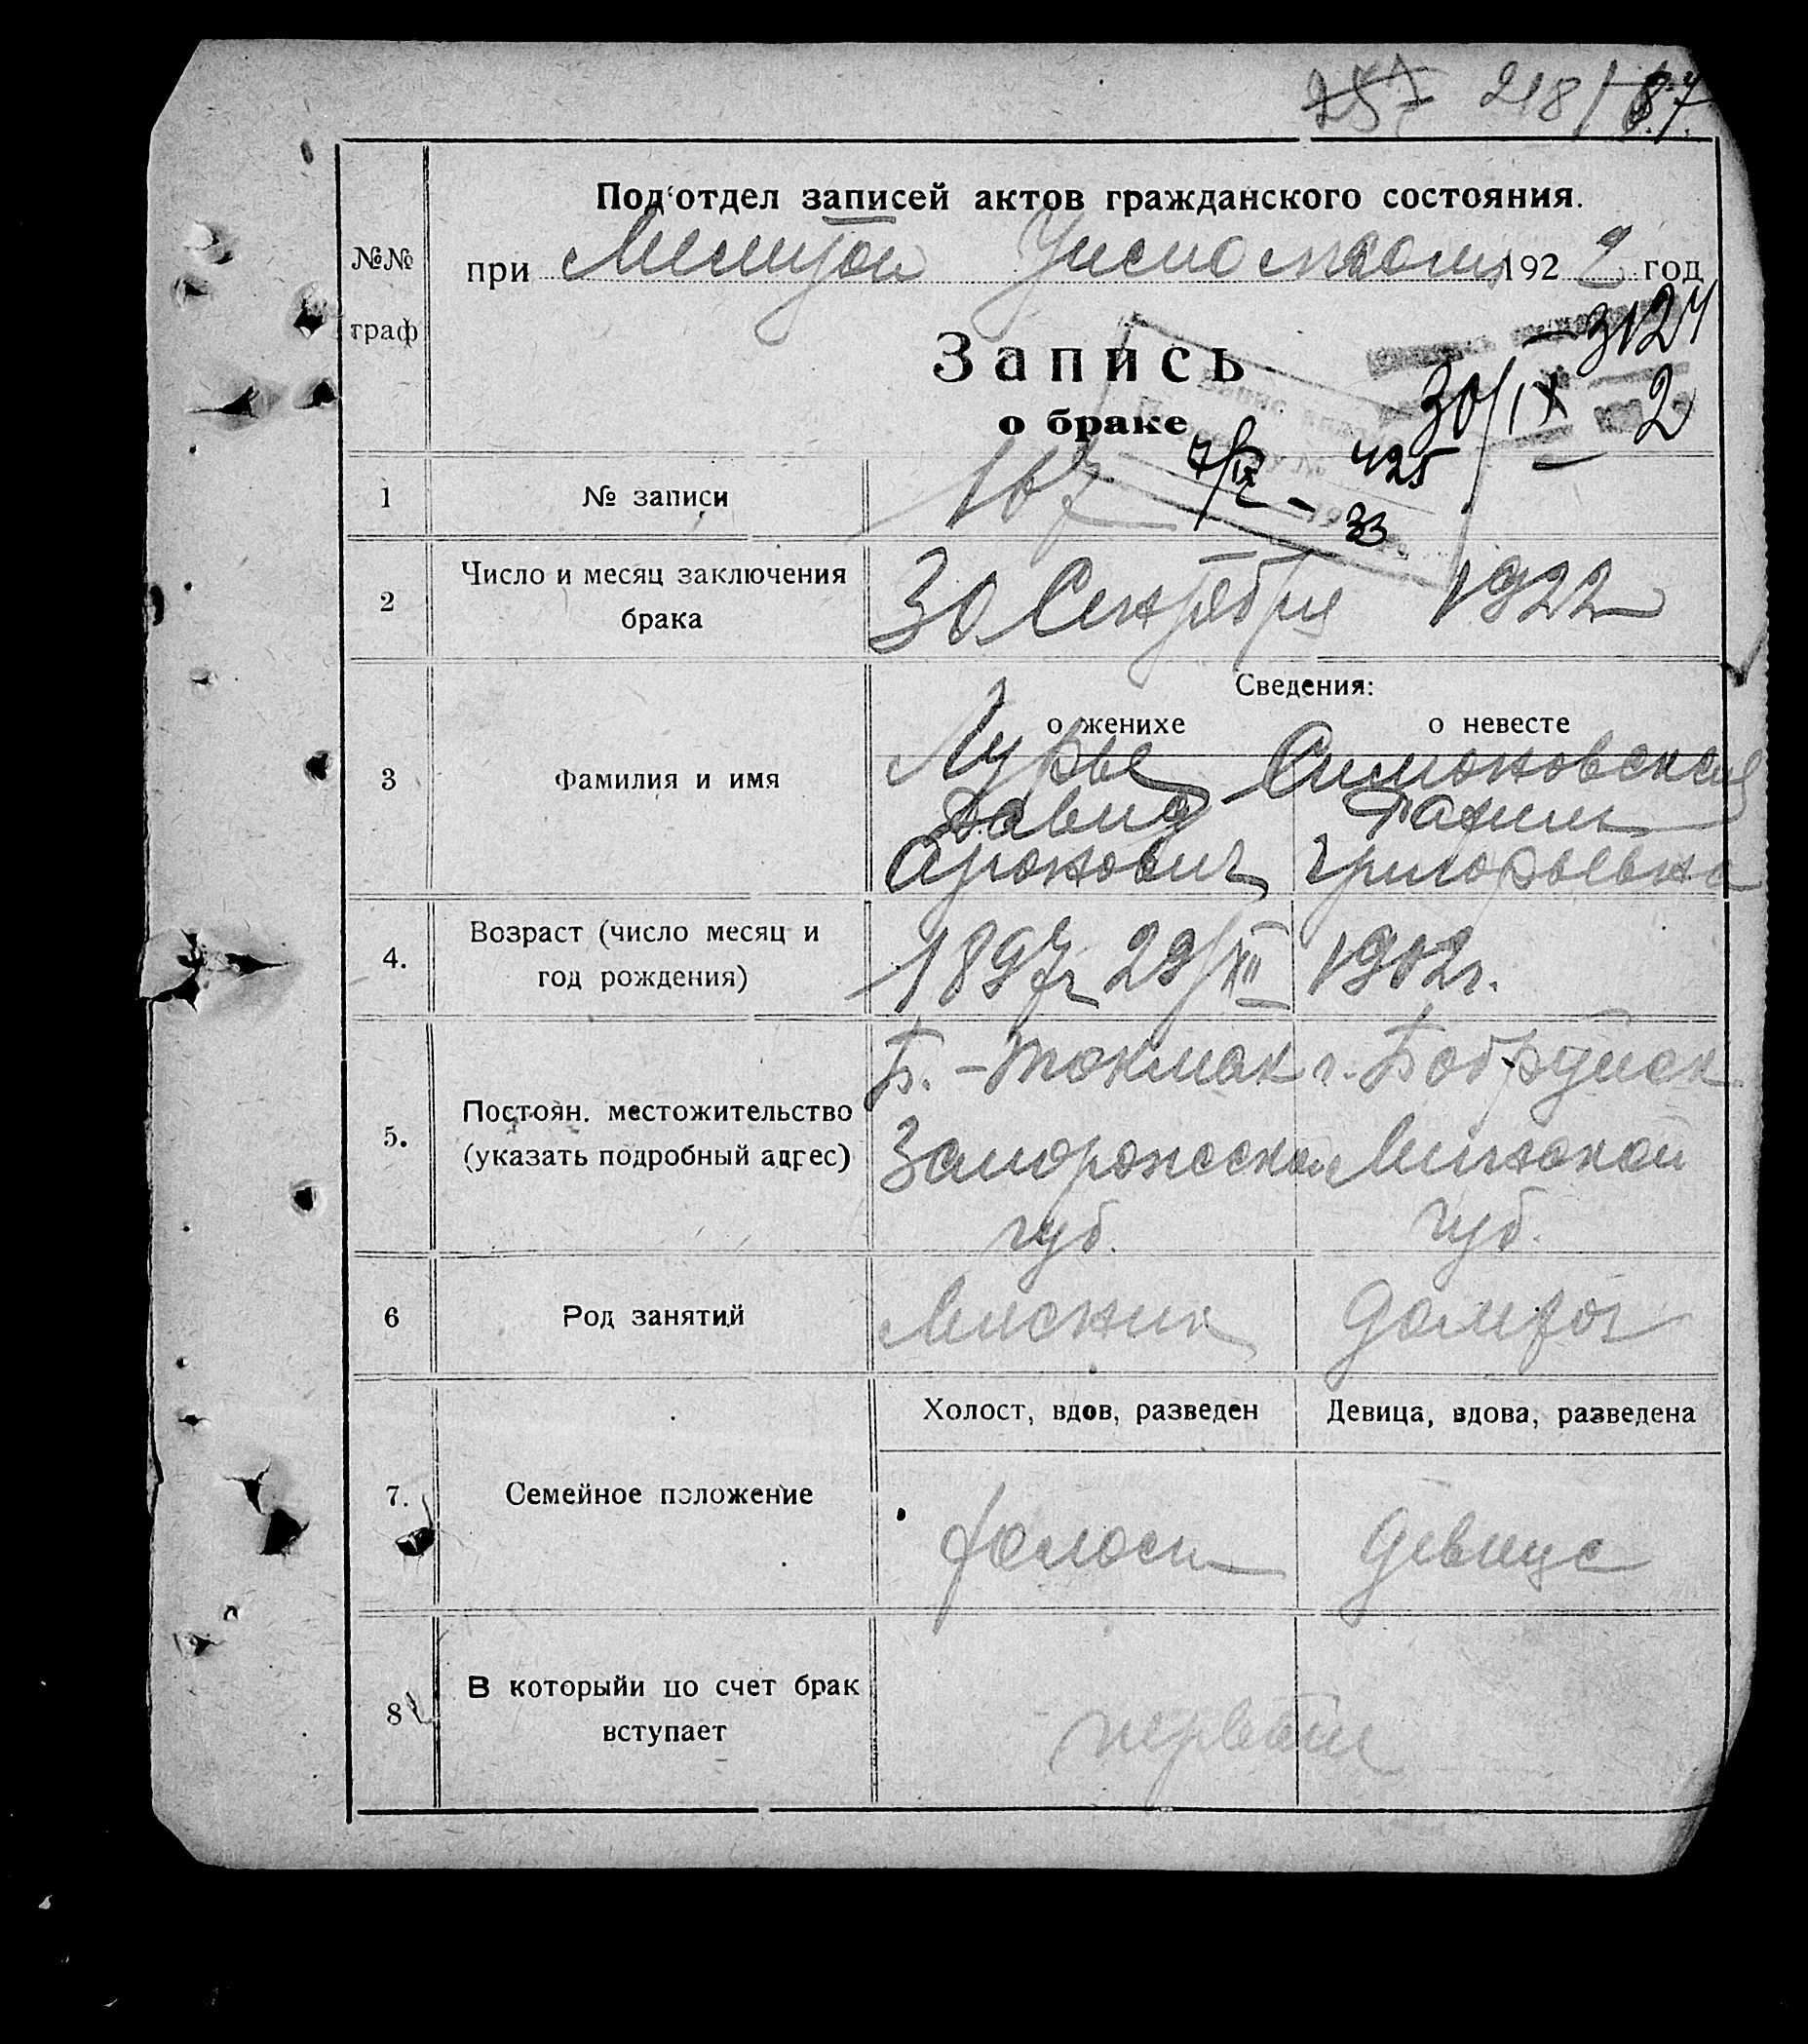 257 218/87
Под‘отдел записей актов гражданского состояния.
№№
граф
при Мелитоп Уисполкоми 1922 год
Запись
о браке
3124
30/IX 2
1 № записи 167
7/IX - 425
33
2 Число и месяц заключения
брака
30 Сентября 1922
Сведения:
о женихе о невесте
3 Фамилия и имя
Лурье Симоновская
Давид Рахиль
Аронович Григорьевна
4. Возраст (число месяц и
год рождения)
1897г 29/XII 1902г.
5. Постоян. местожительство
(указать подробный адрес)
Б.-Токмак г. Бобруйск
Запорожской Минской
губ. губ.
6 Род занятий
Мясник домхоз
Холост, вдов, разведен Девица, вдова, разведена
7. Семейное положение
холост девица
8 В которыйи по счет брак
вступает
первый